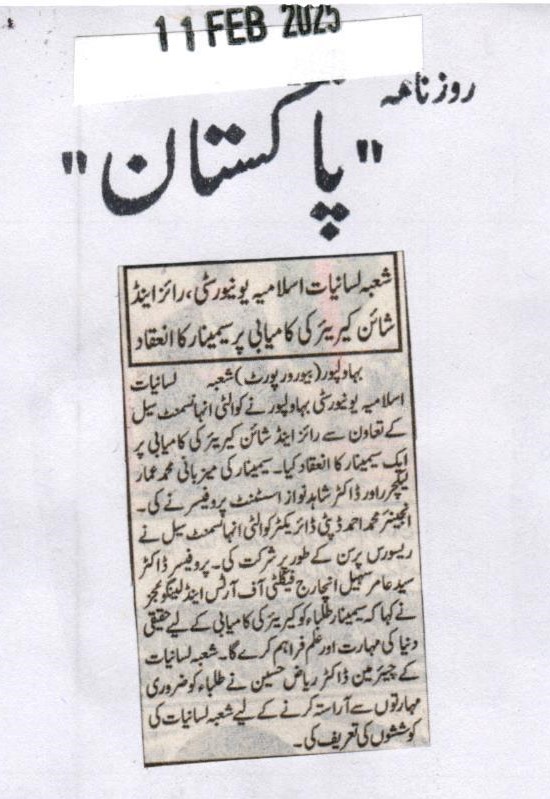 11 FEB 2025
روزنامہ
"پاکستان"
شعبہ لسانیات اسلامیہ یونیورسٹی، رائز اینڈ
شائن کیریئر کی کامیابی پر سیمینار کا انعقاد
بہاولپور (بیورو رپورٹ) شعبہ لسانیات
اسلامیہ یونیورسٹی بہاولپور نے کوالٹی انہانسمنٹ سیل
کے تعاون سے رائز اینڈ شائن کیریئر کی کامیابی پر
ایک سیمینار کا انعقاد کیا۔ سیمینار کی میزبانی محمد عمار
لیکچرر اور ڈاکٹر شاہد نواز اسسٹنٹ پروفیسر نے کی۔
انجینئر محمد احمد ڈپٹی ڈائریکٹر کوالٹی انہانسمنٹ سیل نے
ریسورس پرسن کے طور پر شرکت کی۔ پروفیسر ڈاکٹر
سید عامر سہیل انچارج فیکلٹی آف آرٹس اینڈ لینگوئجز
نے کہا کہ سیمینار طلباء کو کیریئر کی کامیابی کے لیے حقیقی
دنیا کی مہارت اور علم فراہم کرے گا۔ شعبہ لسانیات
کے چیئرمین ڈاکٹر ریاض حسین نے طلباء کو ضروری
مہارتوں سے آراستہ کرنے کے لیے شعبہ لسانیات کی
کوششوں کی تعریف کی۔